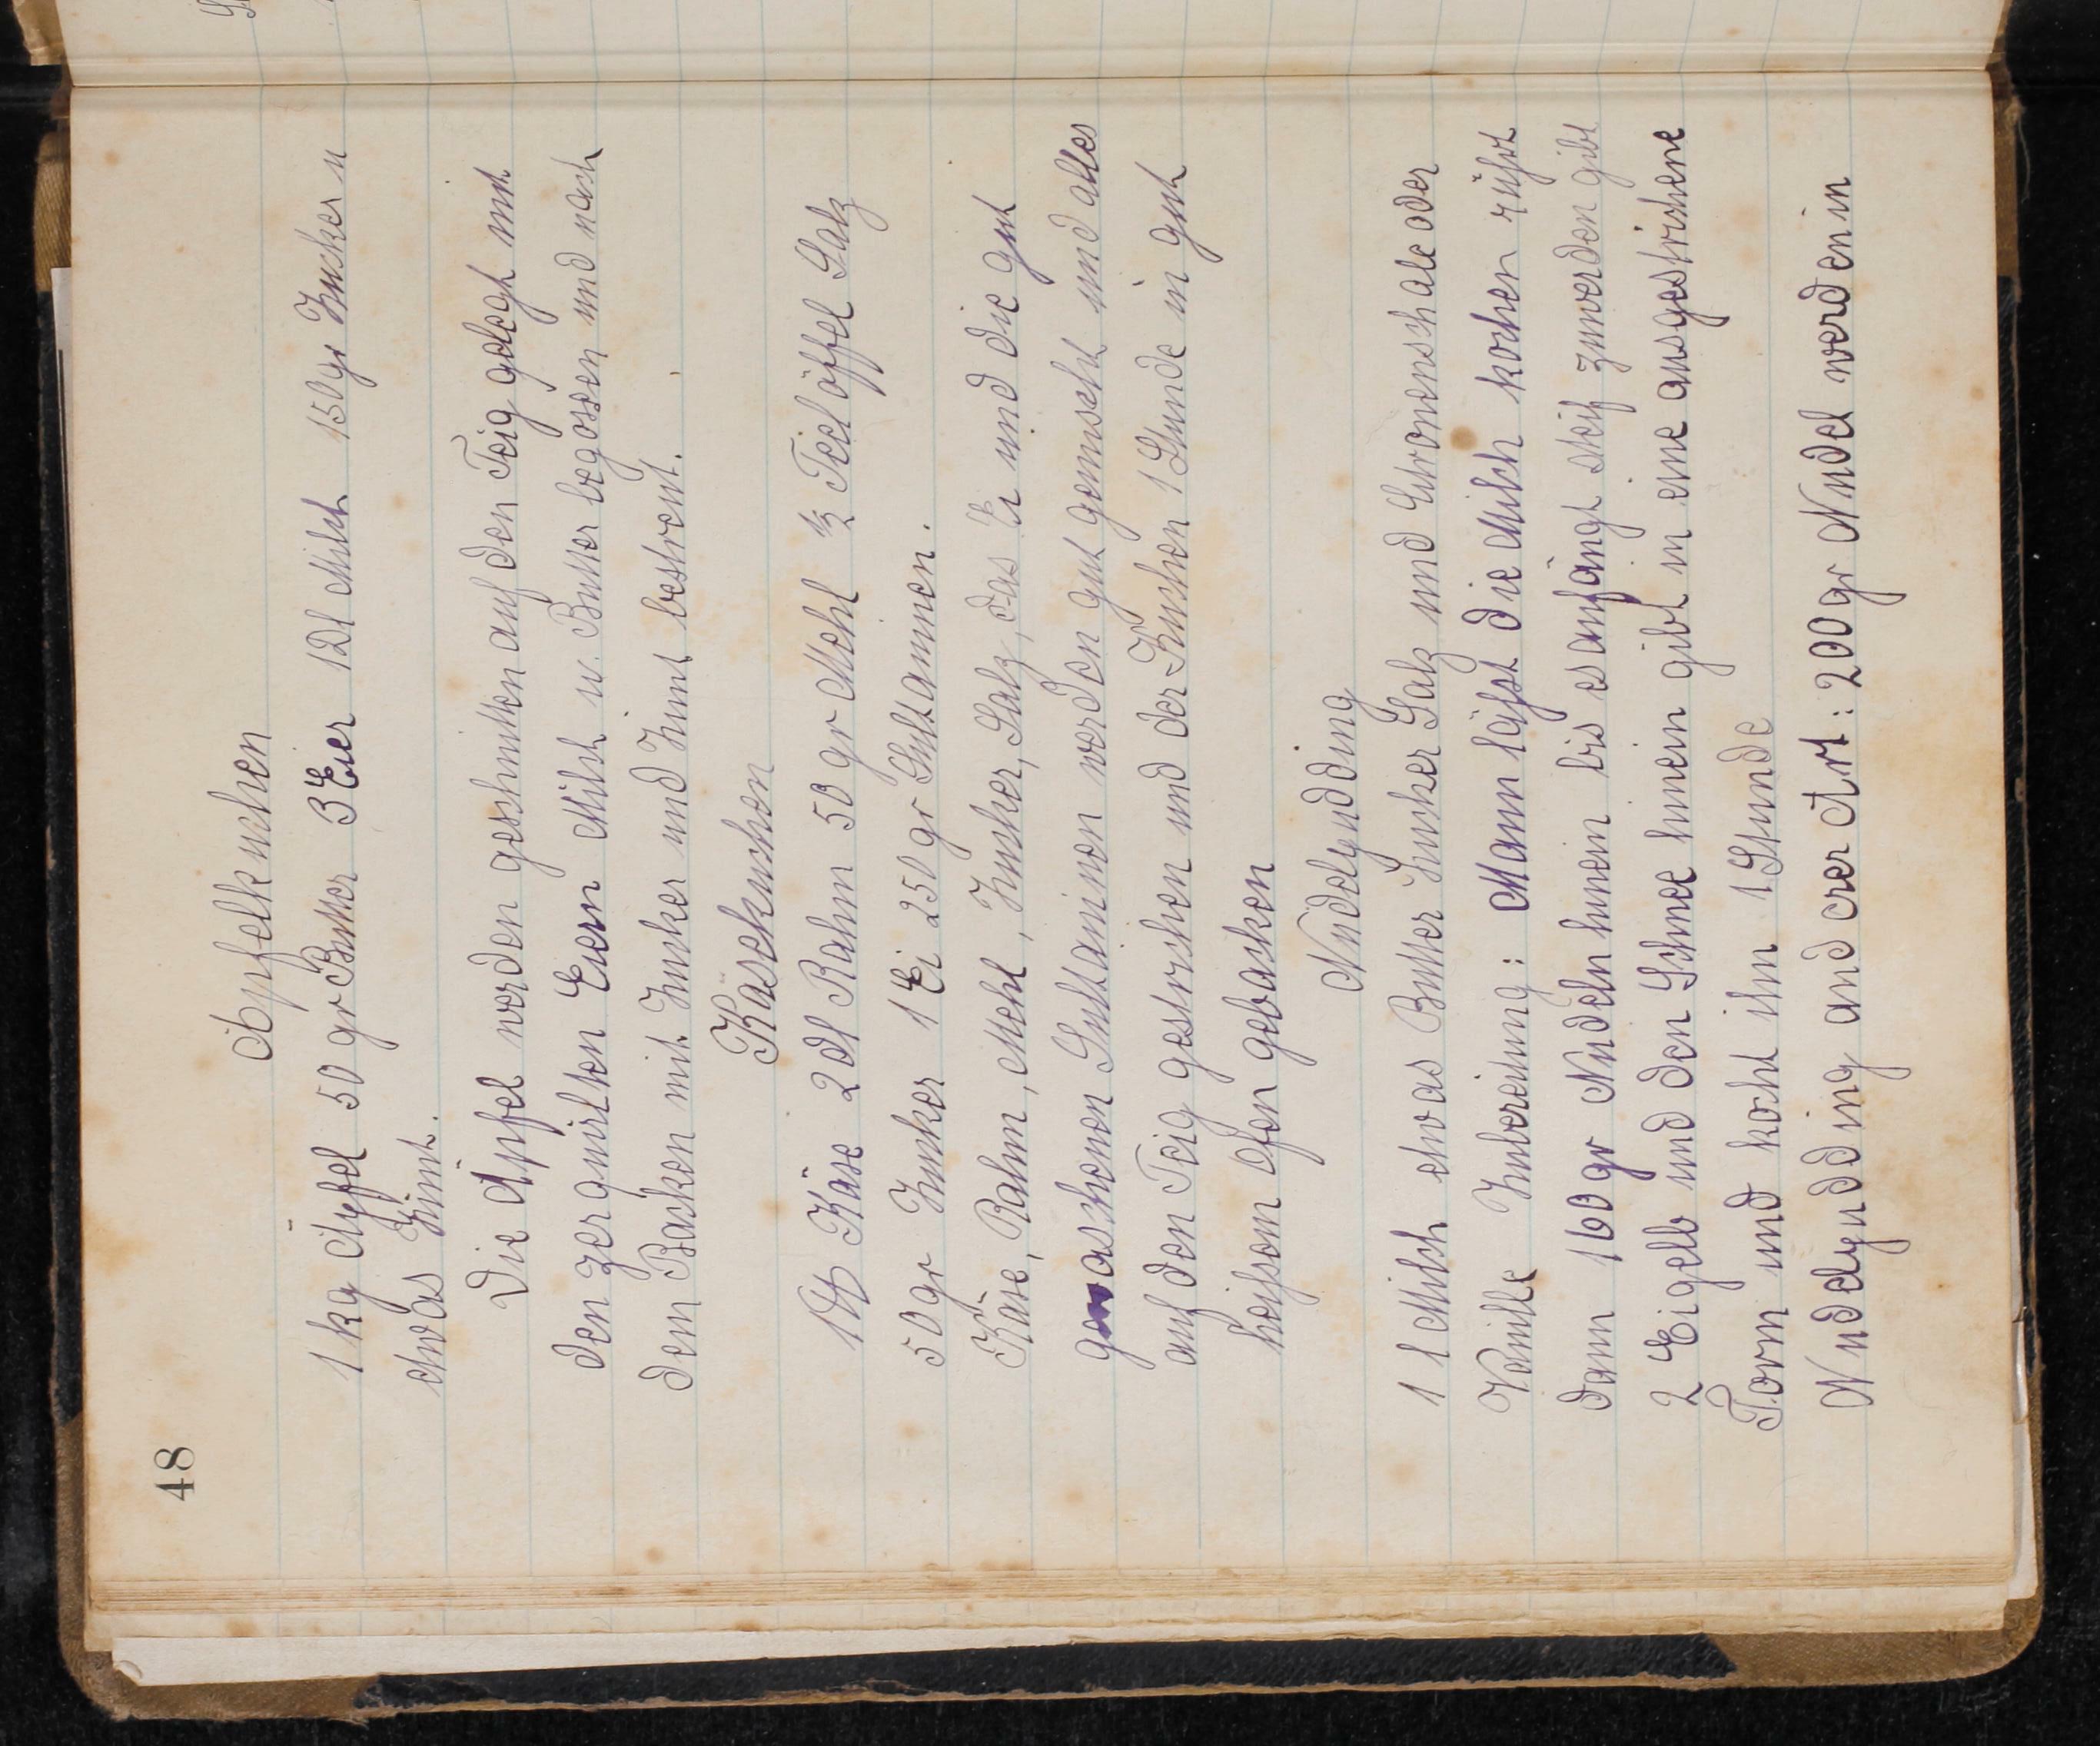 48
Apfelkuchen
1 kg Äpfel 50 gr Butter 3 Eier 1 Dl Milch 150 gr Zucker u
etwas Zimt.
Die Äpfel werden geschnitten auf den Teig gelegt mit
den zerquirlten Eiern Milch u. Butter begossen und nach
dem Backen mit Zucker und Zimt bestreut.
Käsekuchen
1 ℔ Käse 2 dl Rahm 50 gr Mehl ½ Teelöffel Salz
50 gr Zucker 1 Ei 250 gr Sultaninen.
Käse, Rahm, Mehl, Zucker, Salz, das Ei und die gut
gewaschenen Sultaninen werden gut gemischt und alles
auf den Teig gestrichen und der Kuchen 1 Stunde in gut
heissem Ofen gebacken
Nudelpudding
1 l Milch etwas Butter Zucker Salz und Citronenschale oder
Vanille Zubereitung: Mann lässt die Milch kochen rührt
dann 160 gr Nudeln hinein bis es anfängt steif zuwerden gibt
2 Eigelb und den Schnee hinein gibt in eine ausgestrichene
Form und kocht ihn 1 Stunde
Nudelpudding anderer Art: 200 gr Nudel werden in